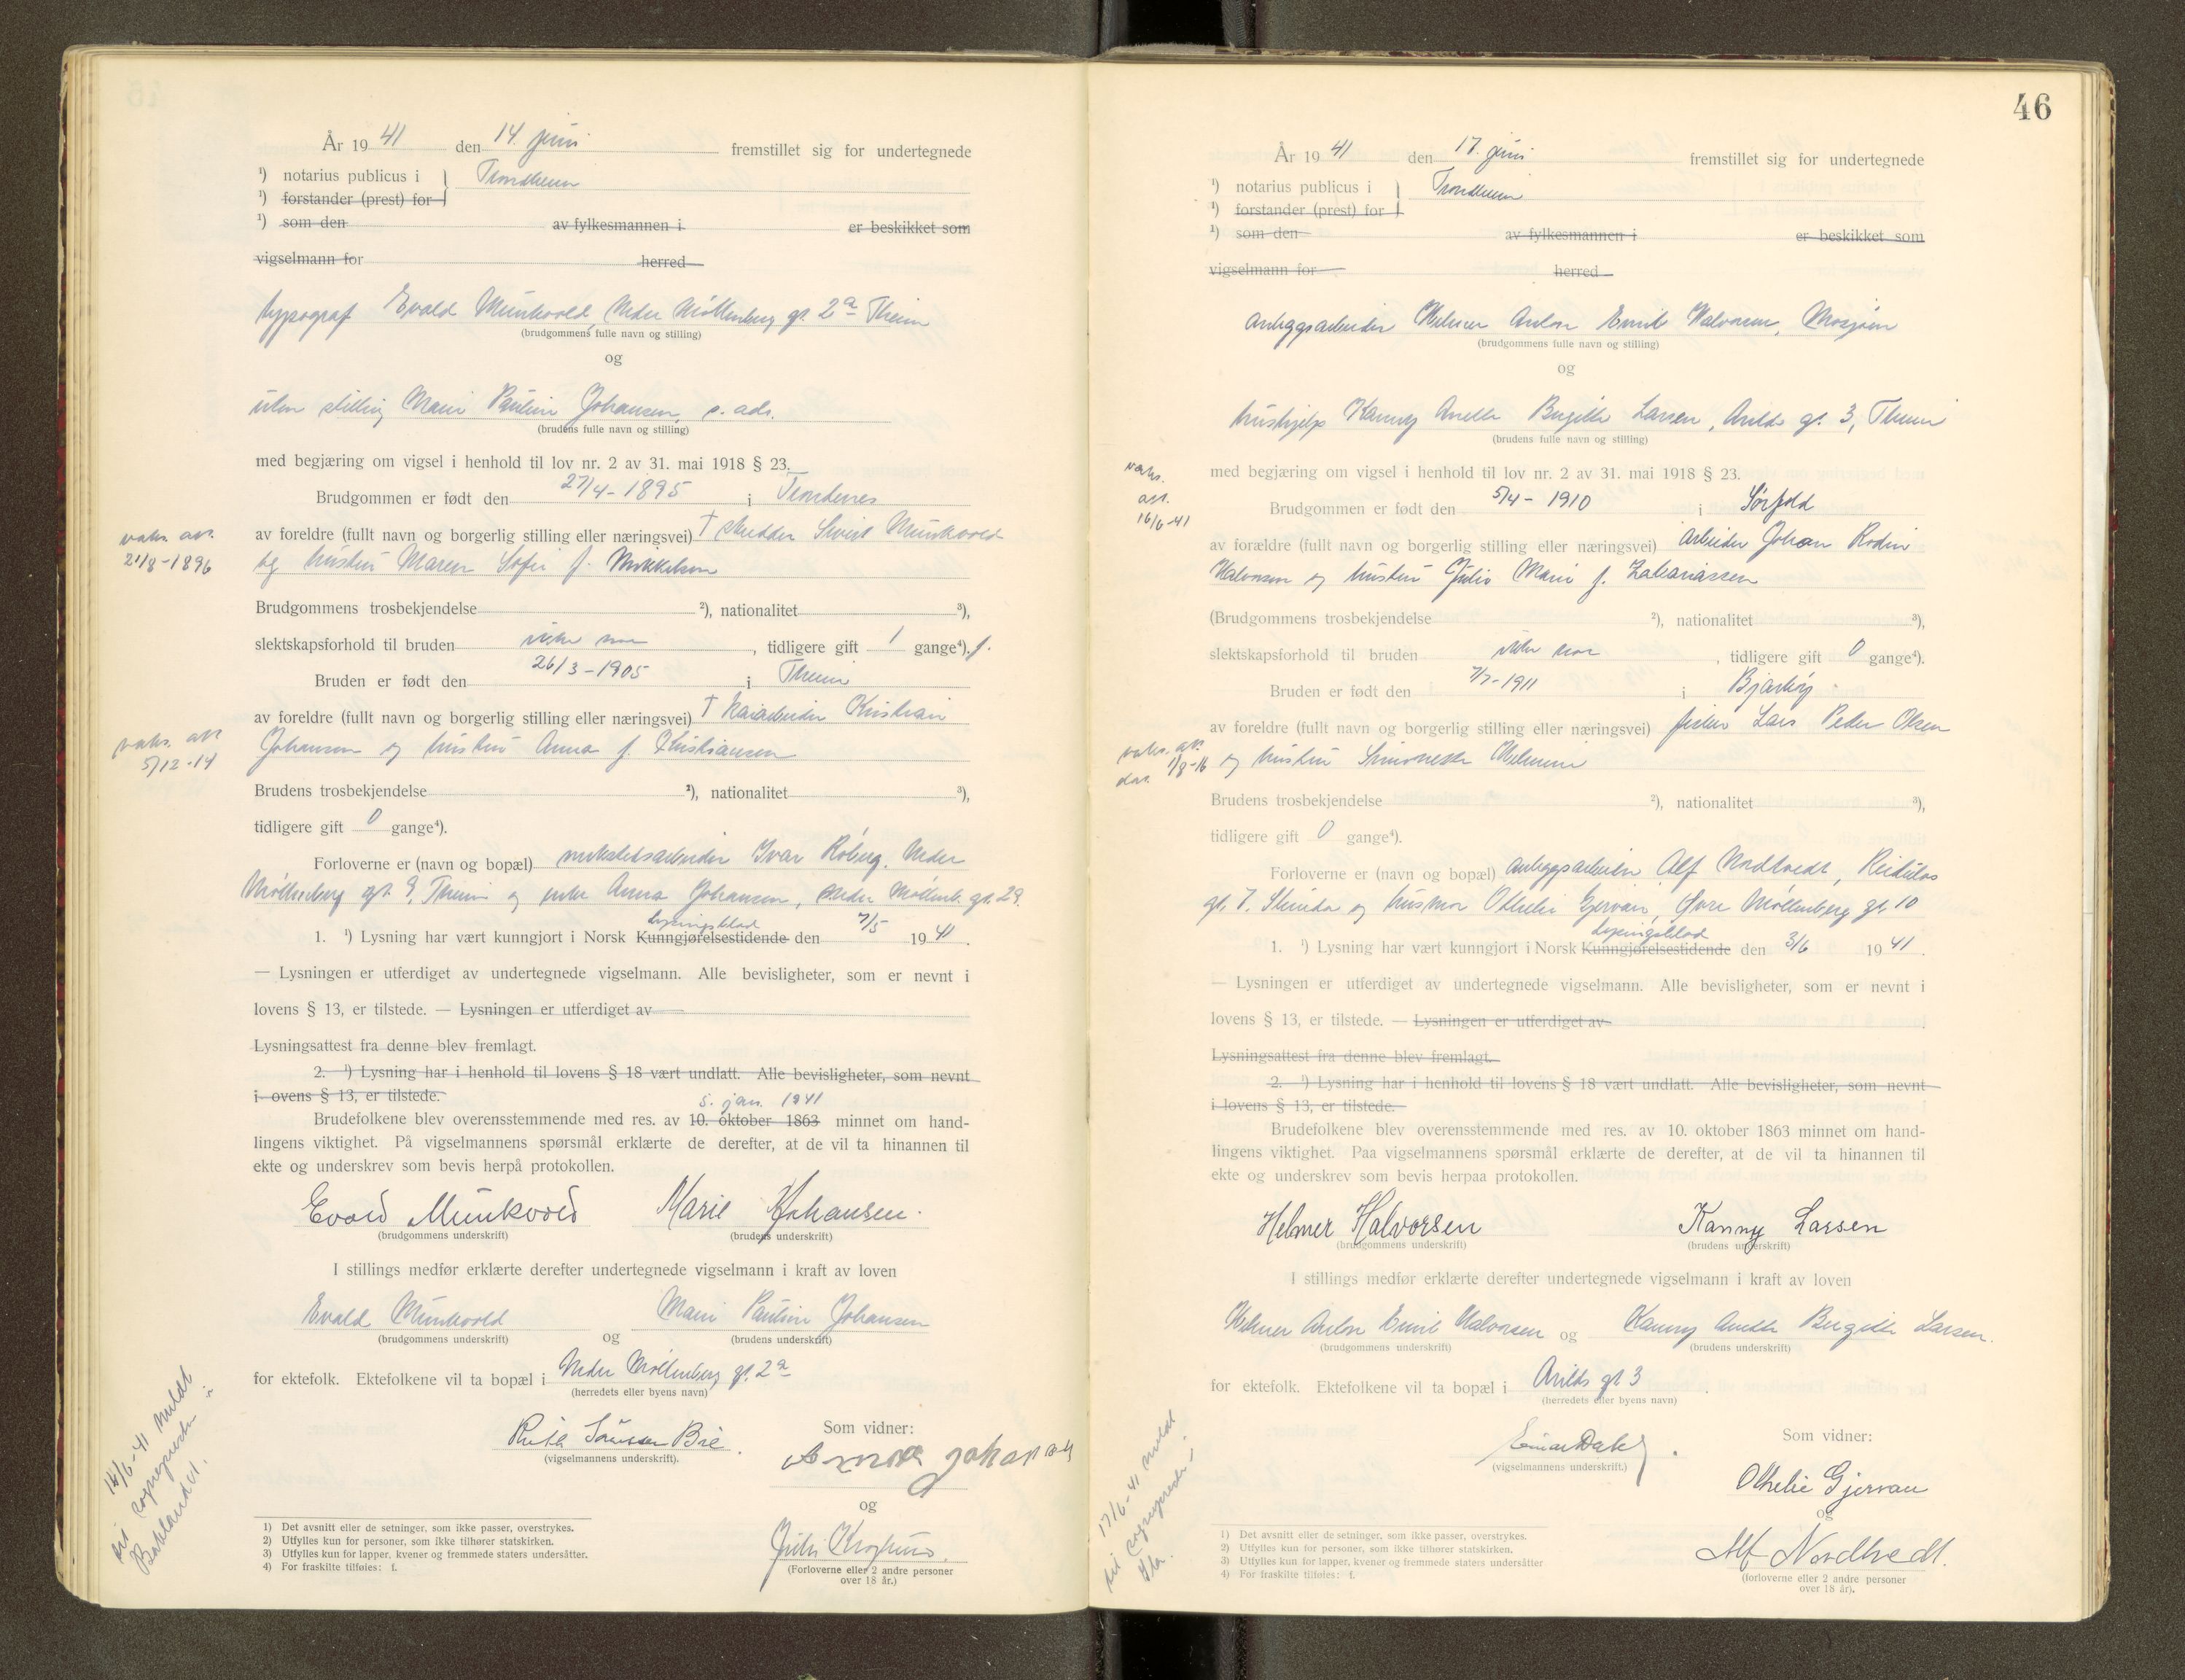 År 19 41 den 14. juni fremstillet sig for undertegnede
¹) notarius publicus i } Trondheim
¹) forstander (prest) for
¹) som den av fylkesmannen i er beskikket som
vigselmann for herred
typograf Evald Munkvold, Nedre Møllenberg gt. 2a Theim
(brudgommens fulle navn og stilling)
og
uten stilling Marie Pauline Johansen, s. adr.
(brudens fulle navn og stilling)
med begjæring om vigsel i henhold til lov nr. 2 av 31. mai 1918 § 23.
Brudgommen er født den 27/4-1895 i Trondenes
vaks. att.
21/8-1896
av foreldre (fullt navn og borgerlig stilling eller næringsvei) † skredder Sivert Munkvold
og hustru Maren Sofie f. Mikkelsen
Brudgommens trosbekjendelse ²), nationalitet ³),
slektskapsforhold til bruden ikke noe, tidligere gift 1 gange⁴). f.
Bruden er født den 26/3-1905 i Theim
vaks. att
5/12-14
av foreldre (fullt navn og borgerlig stilling eller næringsvei) † kaiarbeider Kristian
Johansen og hustru Anna f. Kristiansen
Brudens trosbekjendelse ²), nationalitet ³),
tidligere gift 0 gange⁴).
Forloverne er (navn og bopæl) verkstedsarbeider Ivar Røberg. Nedre
Møllenberg gt. 9, Theim og enke Anna Johansen, Nedre Møllenb. gt. 2a.
Lysingsblad
1. ¹) Lysning har vært kunngjort i Norsk Kunngjørelsestidende den 7/5 19 41.
— Lysningen er utferdiget av undertegnede vigselmann. Alle bevisligheter, som er nevnt i
lovens § 13, er tilstede. — Lysningen er utferdiget av
Lysningsattest fra denne blev fremlagt.
2. ¹) Lysning har i henhold til lovens § 18 vært undlatt. Alle bevisligheter, som nevnt
i ovens § 13, er tilstede.
5. jan. 1941
Brudefolkene blev overensstemmende med res. av 10. oktober 1863 minnet om hand-
lingens viktighet. På vigselmannens spørsmål erklærte de derefter, at de vil ta hinannen til
ekte og underskrev som bevis herpå protokollen.
Evald Munkvold Marie Johansen.
(brudgommens underskrift) (brudens underskrift)
I stillings medfør erklærte derefter undertegnede vigselmann i kraft av loven
Evald Munkvold og Marie Pauline Johansen
(brudgommens underskrift) (brudens underskrift)
for ektefolk. Ektefolkene vil ta bopæl i Nedre Møllenberg gt. 2a
(herredets eller byens navn)
14/6-41 meldt
til sognepresten i
Baklandet.
Som vidner:
(vigselmannens underskrift).
Anna Johansen
og
(Forloverne eller 2 andre personer
over 18 år.)
1) Det avsnitt eller de setninger, som ikke passer, overstrykes.
2) Utfylles kun for personer, som ikke tilhører statskirken.
3) Utfylles kun for lapper, kvener og fremmede staters undersåtter.
4) For fraskilte tilføies: f.
46
År 19 41 den 17. juni fremstillet sig for undertegnede
¹) notarius publicus i } Trondheim
¹) forstander (prest) for
¹) som den av fylkesmannen i er beskikket som
vigselmann for herred
anleggsarbeider Helmer Anton Emil Halvorsen, Mosjøen
(brudgommens fulle navn og stilling)
og
hushjelp Kanny Anette Birgitte Larsen, Arilds gt. 3, Theim
(brudens fulle navn og stilling)
med begjæring om vigsel i henhold til lov nr. 2 av 31. mai 1918 § 23.
vaks.
att.
16/6-41
Brudgommen er født den 5/4-1910 i Sørfold
av forældre (fullt navn og borgerlig stilling eller næringsvei) arbeider Johan Rodin
Halvorsen og hustru Julie Marie f. Zakariassen
(Brudgommens trosbekjendelse ²), nationalitet ³),
slektskapsforhold til bruden ikke noe, tidligere gift 0 gange⁴).
Bruden er født den 7/7-1911 i Bjarkøy
av foreldre (fullt navn og borgerlig stilling eller næringsvei) fisker Lars Peder Olsen
vaks. att.
dat. 1/8-16
og hustru Simonette Helmine
Brudens trosbekjendelse ²), nationalitet ³),
tidligere gift 0 gange⁴).
Forloverne er (navn og bopæl) anleggsarbeider Alf Nordtvedt, Reidulvs
gt. 7. Strinda og husmor Othelie Gjervan, Øvre Møllenberg gt. 10
Lysingsblad
1. ¹) Lysning har vært kunngjort i Norsk Kunngjørelsestidende den 3/6 19 41.
— Lysningen er utferdiget av undertegnede vigselmann. Alle bevisligheter, som er nevnt i
lovens § 13, er tilstede. — Lysningen er utferdiget av
Lysningsattest fra denne blev fremlagt.
2. ¹) Lysning har i henhold til lovens § 18 vært undlatt. Alle bevisligheter, som nevnt
i lovens § 13, er tilstede.
Brudefolkene blev overensstemmende med res. av 10. oktober 1863 minnet om hand-
lingens viktighet. Paa vigselmannens spørsmål erklærte de derefter, at de vil ta hinannen til
ekte og underskrev som bevis herpaa protokollen.
Helmer Halvorsen Kanny Larsen
(brudgommens underskrift) (brudens underskrift)
I stillings medfør erklærte derefter undertegnede vigselmann i kraft av loven
Helmer Anton Emil Halvorsen og Kanny Anette Birgitte Larsen.
(brudgommens underskrift) (brudens underskrift)
for ektefolk. Ektefolkene vil ta bopæl i Arilds gt 3
(herredets eller byens navn)
17/6-41 meldt
til sognepresten i
Ila.
Einar Dahl.
(vigselmannens underskrift.)
Som vidner:
Othelie Gjervan
og
Alf Nordtvedt.
(forloverne eller 2 andre personer
over 18 år).
1) Det avsnitt eller de setninger, som ikke passer, overstrykes.
2) Utfylles kun for personer, som ikke tilhører statskirken.
3) Utfylles kun for lapper, kvener og fremmede staters undersåtter
4) For fraskilte tilføies: f.